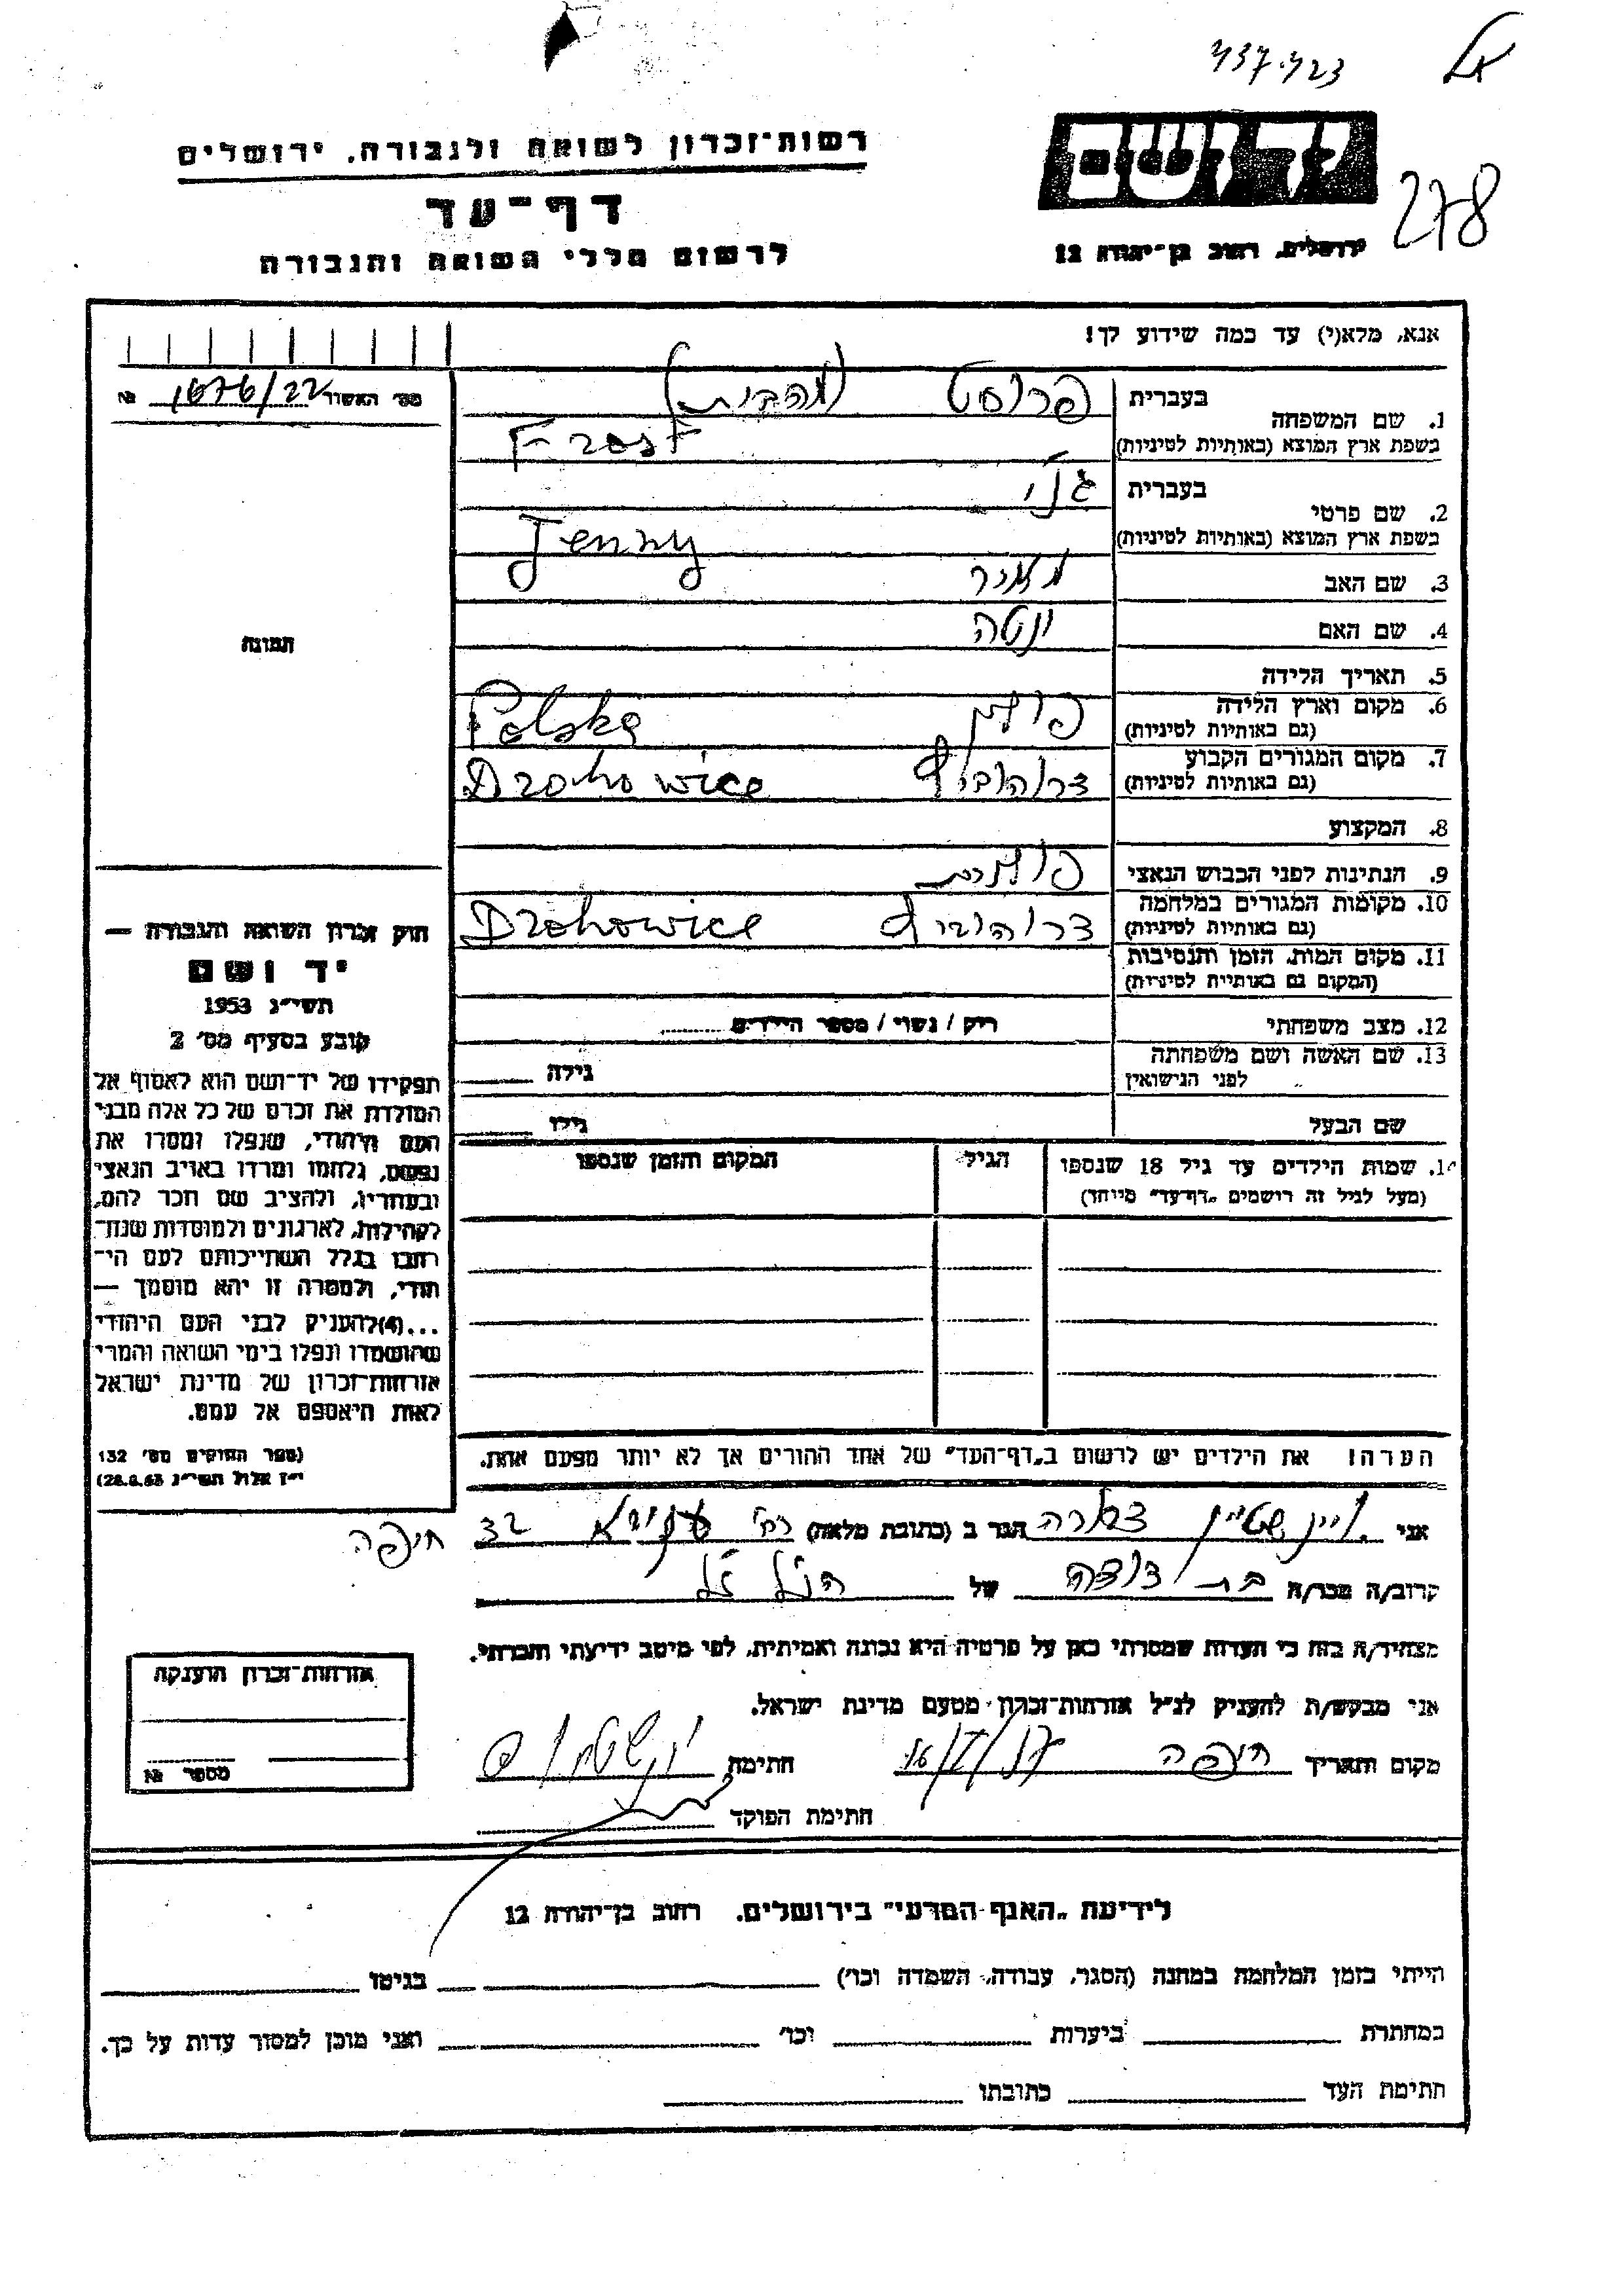 437.423
אל
רשות־זכרון לשואה ולגבורה, ירושלים
יד ושם
278
דף־עד
ירושלים, רחוב בן־יהודה 12
לרשום חללי השואה והגבורה
אנא, מלא(י) עד כמה שידוע לך!
מס׳ האשור 1676/22 №
1. שם המשפחה
בעברית פרוסט (מהבית)
בשפת ארץ המוצא (באותיות לטיניות) Frost
2. שם פרטי
בעברית ג׳ני
בשפת ארץ המוצא (באותיות לטיניות) Jenny
3. שם האב מאיר
4. שם האם ינטה
תמונה
5. תאריך הלידה
6. מקום וארץ הלידה פולין Polska
(גם באותיות לטיניות)
7. מקום המגורים הקבוע Drohowice
(גם באותיות לטיניות)
8. המקצוע
9. הנתינות לפני הכבוש הנאצי פולנית
10. מקומות המגורים במלחמה Drohowice
(גם באותיות לטיניות)
11. מקום המות, הזמן והנסיבות
(המקום גם באותיות לטיניות)
12. מצב משפחתי רוק / נשוי / מספר הילדים
13. שם האשה ושם משפחתה גילה
לפני הנישואין
שם הבעל גילו
שמות הילדים עד גיל 18 שנספו הגיל המקום והזמן שנספו
(מעל לגיל זה רושמים „דף־עד״ מיוחד)
חוק זכרון השואה והגבורה —
יד ושם
תשי״ג 1953
קובע בסעיף מס׳ 2
תפקידו של יד־ושם הוא לאסוף אל
המולדת את זכרם של כל אלה מבני
העם היהודי, שנפלו ומסרו את
נפשם, נלחמו ומרדו באויב הנאצי
ובעוזריו, ולהציב שם וזכר להם,
לקהילות, לארגונים ולמוסדות שנח־
רבו בגלל השתייכותם לעם הי־
הודי, ולמטרה זו יהא מוסמך —
...(4)להעניק לבני העם היהודי
שהושמדו ונפלו בימי השואה והמרי
אזרחות־זכרון של מדינת ישראל
לאות היאספם אל עמם.
(ספר החוקים מס׳ 132
י״ז אלול תשי״ג 28.8.53)
הערה! את הילדים יש לרשום ב„דף־העד״ של אחד ההורים אך לא יותר מפעם אחת.
אני ויינשטיין הגר ב (כתובת מלאה) רח׳ 32 חיפה
קרוב/ה מכר/ה בת דודה של הנ״ל ז״ל
מצהיר/ה בזה כי העדות שמסרתי כאן על פרטיה היא נכונה ואמיתית, לפי מיטב ידיעתי והכרתי.
אני מבקש/ת להעניק לנ״ל אזרחות־זכרון מטעם מדינת ישראל.
מקום ותאריך חיפה חתימה
חתימת הפוקד
אזרחות־זכרון הוענקה
מספר №
לידיעת „האגף המדעי״ בירושלים. רחוב בן־יהודה 12
הייתי בזמן המלחמה במחנה (הסגר, עבודה, השמדה וכו׳) בגיטו
במחתרת ביערות וכו׳ ואני מוכן למסור עדות על כך.
חתימת העד כתובתו